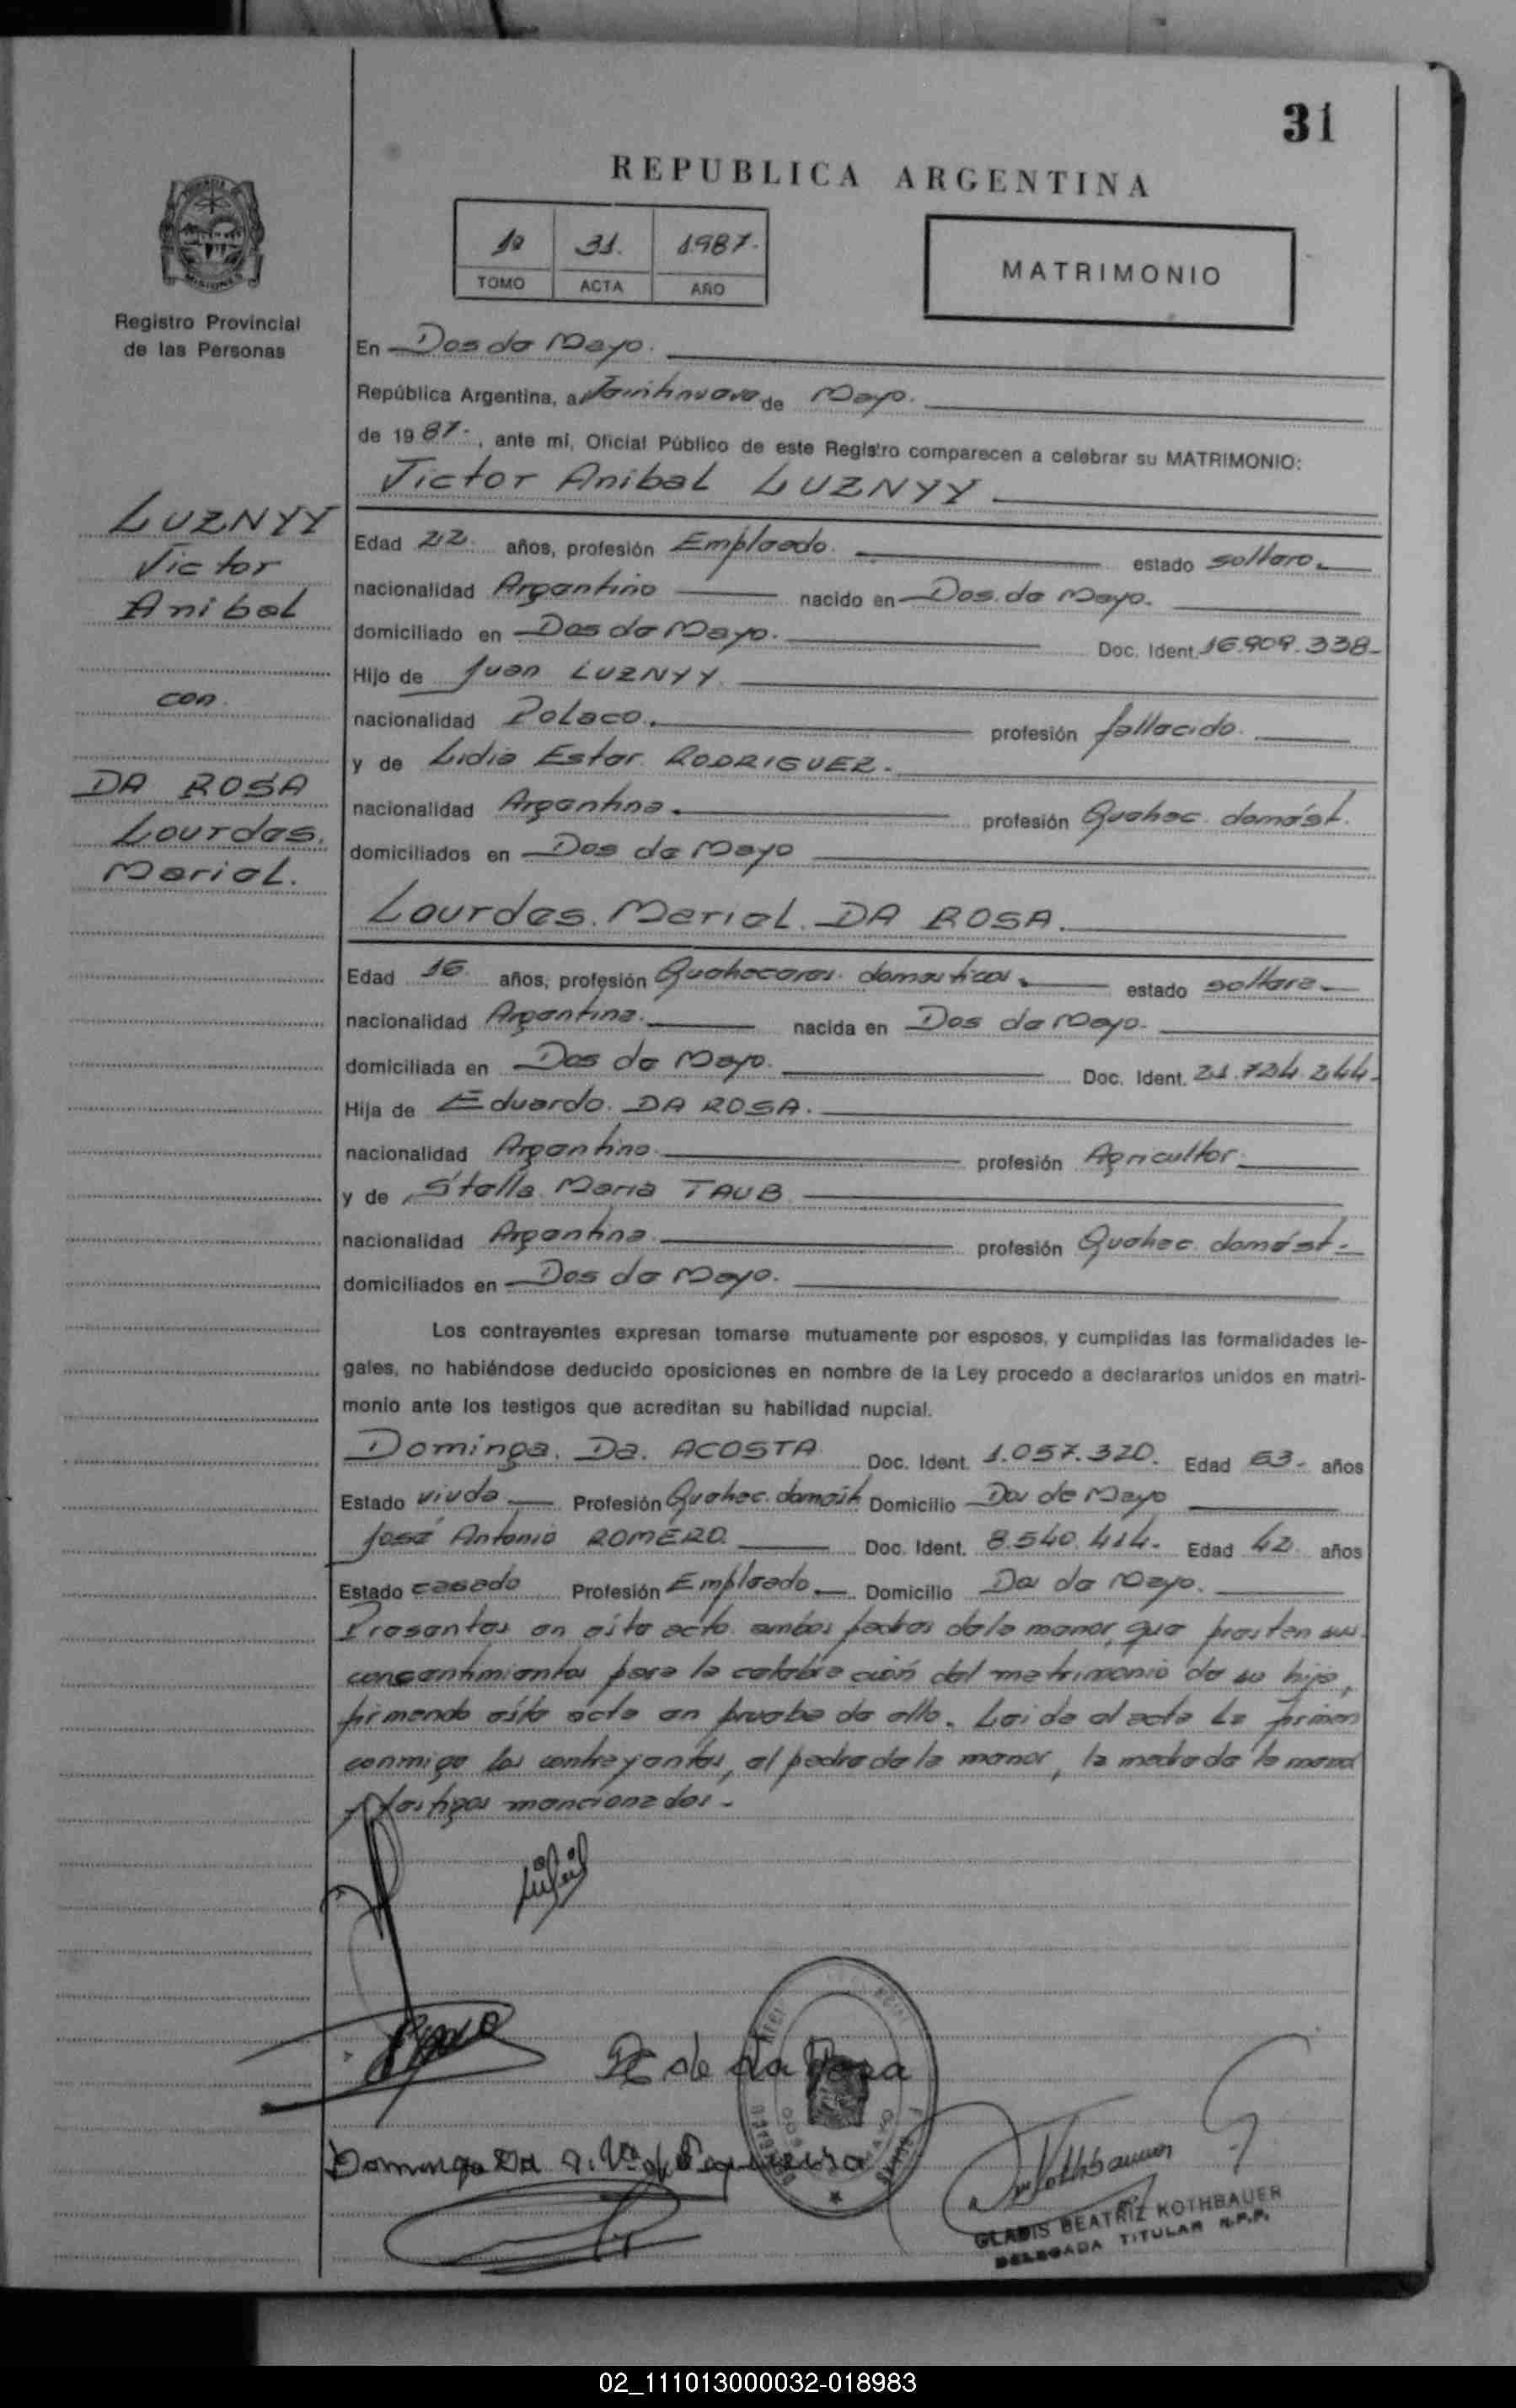 31
REPUBLICA ARGENTINA
1º 31. 1987.-
TOMO ACTA AÑO
MATRIMONIO
MISIONES
Registro Provincial
de las Personas
En Dos de Mayo.
República Argentina, a Veintinueve de Mayo.
de 1987.-, ante mí, Oficial Público de este Registro comparecen a celebrar su MATRIMONIO:
Victor Anibal LUZNYY
LUZNYY
Victor
Anibal
con
DA ROSA
Lourdes.
Mariel.
Edad 22 años, profesión Empleado. estado soltero.
nacionalidad Argentino nacido en Dos de Mayo.
domiciliado en Dos de Mayo. Doc. Ident. 16.909.338-
Hijo de Juan LUZNYY
nacionalidad Polaco. profesión fallecido.
y de Lidia Ester RODRIGUEZ.
nacionalidad Argentina. profesión Quehac. domést.
domiciliados en Dos de Mayo
Lourdes. Mariel. DA ROSA.
Edad 16 años, profesión Quehaceres domesticos. estado soltera
nacionalidad Argentina. nacida en Dos de Mayo.
domiciliada en Dos de Mayo. Doc. Ident. 21.724.244-
Hija de Eduardo. DA ROSA.
nacionalidad Argentino. profesión Agricultor.
y de Stella Maria TAUB
nacionalidad Argentina. profesión Quehac. domést.-
domiciliados en Dos de Mayo.
Los contrayentes expresan tomarse mutuamente por esposos, y cumplidas las formalidades le-
gales, no habiéndose deducido oposiciones en nombre de la Ley procedo a declararlos unidos en matri-
monio ante los testigos que acreditan su habilidad nupcial.
Dominga. Da. ACOSTA Doc. Ident. 1.057.320. Edad 63- años
Estado viuda Profesión Quehac. domést. Domicilio Dos de Mayo
José Antonio ROMERO. Doc. Ident. 8.540.414- Edad 42 años
Estado casado Profesión Empleado. Domicilio Dos de Mayo.
Presentes en éste acto ambos padres de la menor, que prestan sus
consentimientos para la celebración del matrimonio de su hija,
firmando éste acta en prueba de ello. Leida el acta La firman
conmigo los contrayentes, el padre de la menor, la madre de la menor
y testigos mencionados.-
de da Rosa
Dominga Da
Kothbauer
GLADIS BEATRIZ KOTHBAUER
DELEGADA TITULAR R.P.P.
02_111013000032-018983